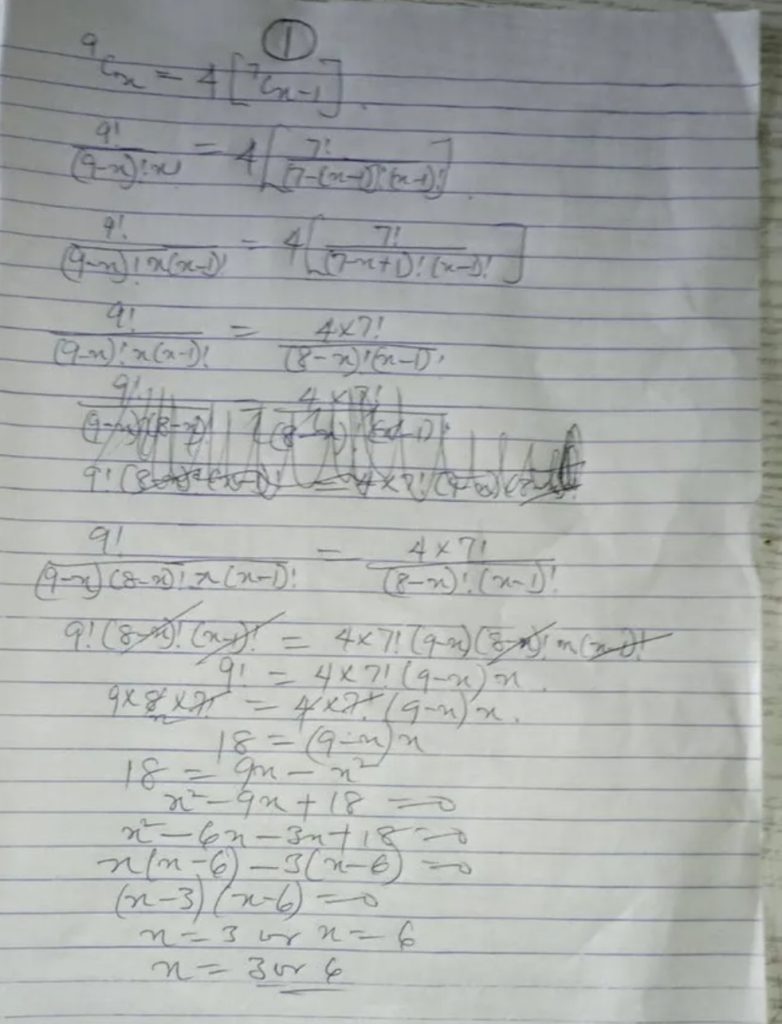 ①
⁹Cx = 4[⁷Cx-1]
9!/(9-x)!x! = 4[7!/(7-(x-1))!(x-1)!]
9!/(9-x)!x(x-1)! = 4[7!/(7-x+1)!(x-1)!]
9!/(9-x)!x(x-1)! = 4×7!/(8-x)!(x-1)!
9!/(9-x)(8-x)!x(x-1)! = 4×7!/(8-x)!(x-1)!
9!(8-x)!(x-1)! = 4×7!(9-x)(8-x)!x(x-1)!
9! = 4×7!(9-x)x.
9×8×7! = 4×7!(9-x)x.
18 = (9-x)x
18 = 9x - x²
x² - 9x + 18 = 0
x² - 6x - 3x + 18 = 0
x(x-6) - 3(x-6) = 0
(x-3)(x-6) = 0
x = 3 or x = 6
x = 3 or 6